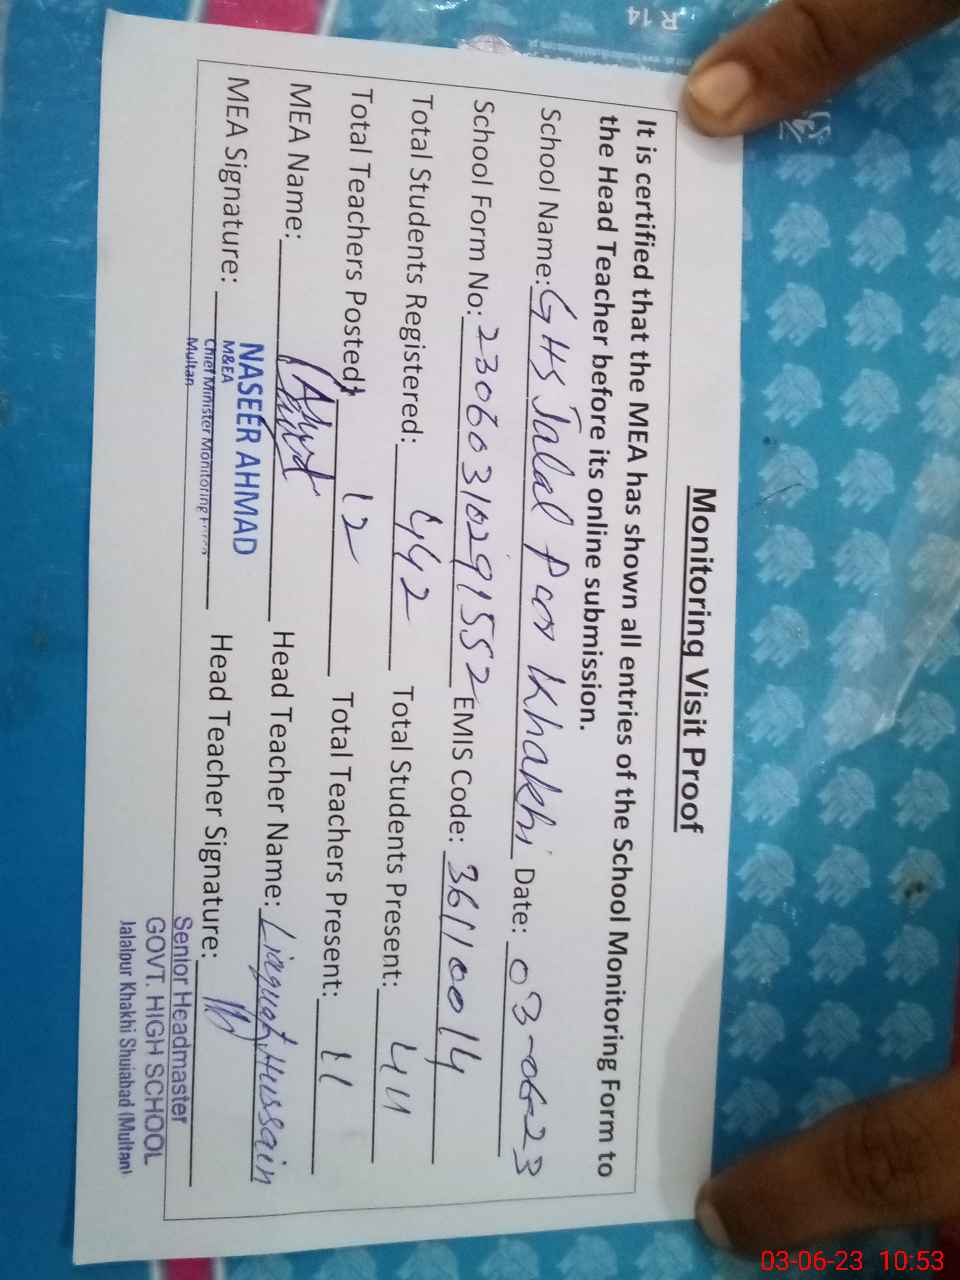 Monitoring Visit Proof
It is certified that the MEA has shown all entries of the School Monitoring Form to
the Head Teacher before its online submission.
School Name: GHS Jalal Pur Khakhi Date: 03-06-23
School Form No: 23060310291552 EMIS Code: 36110014
Total Students Registered: 442 Total Students Present: 411
Total Teachers Posted: 12 Total Teachers Present: 11
MEA Name: Head Teacher Name: Liaquat Hussain
NASEER AHMAD
M&EA
MEA Signature: Head Teacher Signature:
Chief Minister Monitoring Force
Multan
Senior Headmaster
GOVT. HIGH SCHOOL
Jalalpur Khakhi Shujabad (Multan)
R 14
03-06-23 10:53